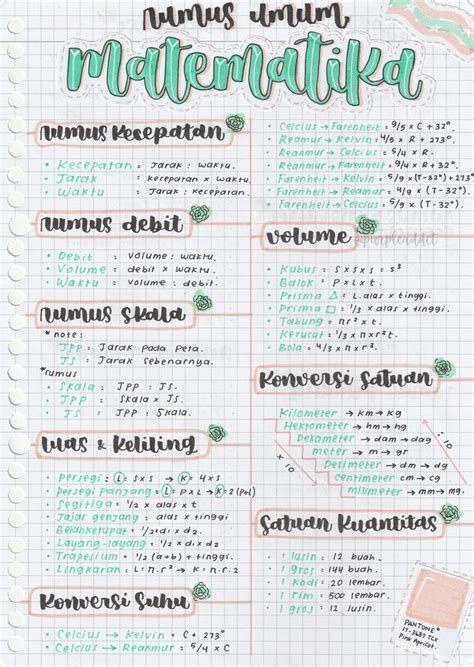 rumus umum
matematika
rumus Kecepatan
• Kecepatan = Jarak : waktu.
• Jarak = kecepatan x waktu.
• Waktu = Jarak : kecepatan.
rumus debit
• Debit = volume : waktu.
• Volume = debit x waktu.
• Waktu = volume : debit.
rumus Skala
*note:
JPP = Jarak pada Peta.
JS = Jarak Sebenarnya.
*rumus
• Skala = JPP : JS.
• JPP = Skala x JS.
• JS = JPP : Skala.
Luas & Keliling
• Persegi : L = s x s → K = 4 x s
• Persegi panjang : L = p x L → K = 2 (p+L)
• Segitiga = 1/2 x alas x tinggi
• Jajar genjang : alas x tinggi
• Belahketupat = 1/2 x d1 x d2.
• Layang-layang = 1/2 x d1 x d2
• Trapesium = 1/2 (a+b) + tinggi
• Lingkaran : L = π.r² → K = π.r.2
Konversi Suhu
• Celcius → Kelvin = C + 273°
• Celcius → Reamur = 5/4 x C
• Celcius → Farenheit = 9/5 x C + 32°
• Reamur → Kelvin = 4/5 x R + 273°.
• Reamur → Celcius = 5/4 x R.
• Reamur → Farenheit = 9/4 x R + 32°
• Farenheit → Kelvin = 5/9 x (T-32)+273°
• Farenheit → Reamur = 4/9 x (T-32).
• Farenheit → Celcius = 5/9 x (T-32).
volume
@purpleaddct
• Kubus = s x s x s = s³
• Balok = P x L x t
• Prisma △ = L. alas x tinggi.
• Prisma □ = 1/3 x alas x tinggi
• Tabung = πr² x t.
• Kerucut = 1/3 x πr² x t.
• Bola = 4/3 x π x r³.
Konversi Satuan
Kilometer → km → kg
Hektometer → hm → hg
Dekameter → dam → dag
meter → m → gr
Desimeter → dm → dg
centimeter → cm → cg
milimeter → mm → mg.
: 10
x 10
Satuan Kuantitas
• 1 lusin : 12 buah.
• 1 gros = 144 buah.
• 1 kodi = 20 lembar.
• 1 rim = 500 lembar.
• 1 gros = 12 lusin.
PANTONE®
TCX
Pink Apricot.